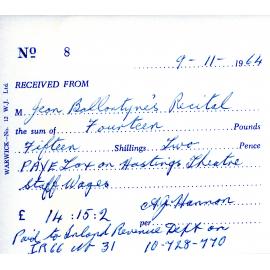 No 8
9-11-1964
RECEIVED FROM
M Jean Ballantyne's Recital
the sum of Fourteen Pounds
Fifteen Shillings Two Pence
PAYE Tax on Hastings Theatre
Staff Wages
£ 14:15:2 per A J Hannon
Paid to Inland Revenue Dept on
IR66 No 31 10-728-770
WARWICK—No. 12 W.J. Ltd.